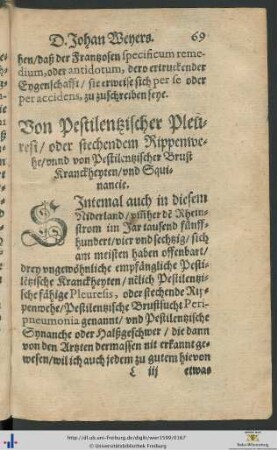 D. Johan Weyers. 69
hen/daß der Frantzosen specificum reme-
dium, oder antidotum, dero ertruckender
Eygenschafft/ sie erweise sich per se oder
per accidens, zu zuschreiben seye.
Von Pestilentzischer Pleu-
resi/ oder stechendem Rippenwe-
he/ vnnd von Pestilentzischer Brust
Kranckheyten/ vnd Squi-
nancie.
SIntemal auch in diesem
Niderland/ vmher dẽ Rhein-
strom im Jar tausend fünff-
hundert/ vier vnd sechtzig/ sich
am meisten haben offenbart/
drey vngewöhnliche empfängliche Pesti-
lẽtzische Kranckheyten/ nẽlich Pestilentzi-
sche fähige Pleuresis, oder stechende Rip-
penwehe/ Pestilentzische Brustsucht Peri-
pneumonia genannt/ vnd Pestilentzische
Synanche oder Halßgeschwer/ die dann
von den Artzten dermassen nit erkannt ge-
wesen/ wil ich auch jedem zu gutem hievon
L iij etwas
http://dl.ub.uni-freiburg.de/diglit/wier1580/0167
© Universitätsbibliothek Freiburg
Baden-Württemberg